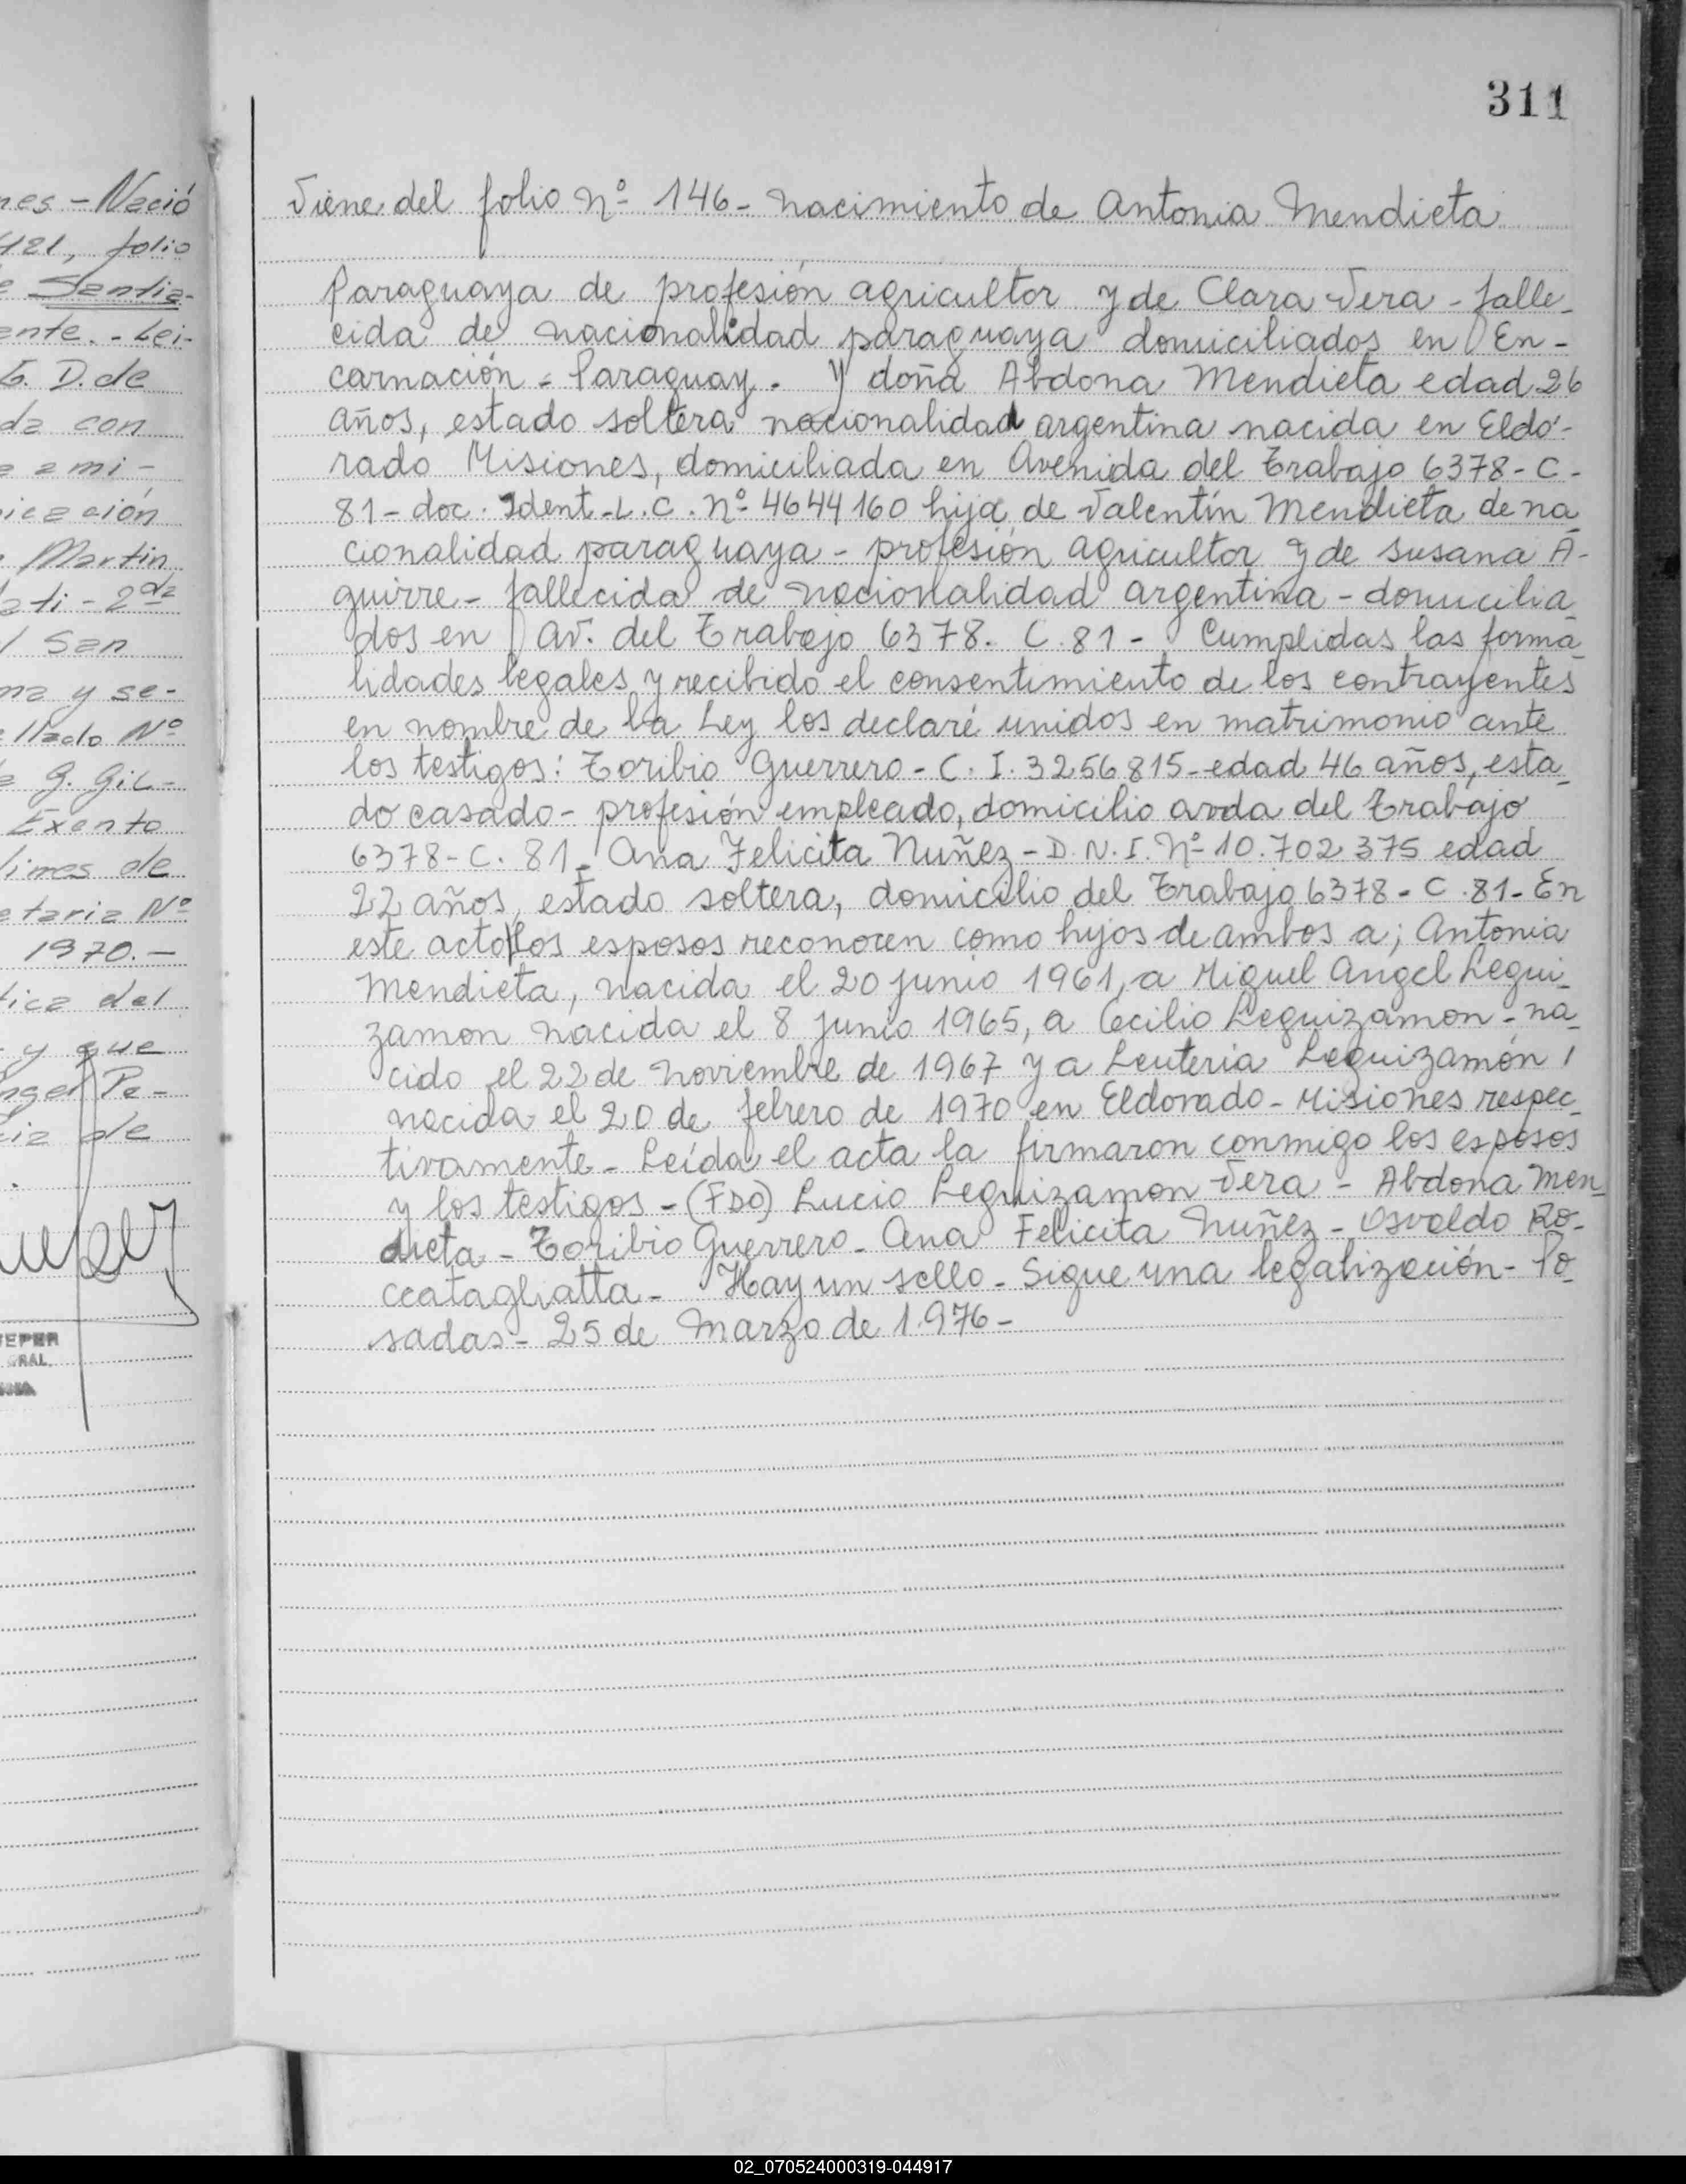 311
nes - Nació
421, folio
e Santia-
ente. - Lei-
G. D. de
da con
e a mi -
icación
Martin
ati - 2da
l San
ma y se-
ellado Nº
G. Gil-
Exento
limes de
etaria Nº
1970. -
tica del
y que
ngel Pe-
cia de
TEPER
GRAL.
Viene del folio Nº 146 - nacimiento de Antonia Mendieta
Paraguaya de profesión agricultor y de Clara Vera - falle-
cida de nacionalidad paraguaya domiciliados en En-
carnación - Paraguay. Y doña Abdona Mendieta edad 26
años, estado soltera nacionalidad argentina nacida en Eldo-
rado Misiones, domiciliada en Avenida del Trabajo 6378 - C -
81 - doc. Ident - L. C. Nº 4644160 hija de Valentín Mendieta de na-
cionalidad paraguaya - profesión agricultor y de Susana A-
guirre - fallecida de nacionalidad argentina - domicilia-
dos en Av. del Trabajo 6378. C. 81 - Cumplidas las forma-
lidades legales y recibido el consentimiento de los contrayentes
en nombre de la Ley los declaré unidos en matrimonio ante
los testigos: Toribio Guerrero - C. I. 3256815 - edad 46 años, esta-
do casado - profesión empleado, domicilio avda del Trabajo
6378 - C. 81 - Ana Felicita Nuñez - D. N. I. Nº 10.702.375 edad
22 años, estado soltera, domicilio del Trabajo 6378 - C. 81 - En
este acto los esposos reconocen como hijos de ambos a; Antonia
Mendieta, nacida el 20 junio 1961, a Miguel Angel Legui-
zamon nacida el 8 junio 1965, a Cecilio Leguizamon - na-
cido el 22 de Noviembre de 1967 y a Leuteria Leguizamón,
nacida el 20 de febrero de 1970 en Eldorado - Misiones respec-
tivamente - Leída el acta la firmaron conmigo los esposos
y los testigos - (FDO) Lucio Leguizamon Vera - Abdona Men-
dieta - Toribio Guerrero - Ana Felicita Nuñez - Osvaldo Ro-
ccatagliatta - Hay un sello - Sigue una legalización - Po-
sadas - 25 de Marzo de 1.976 -
02_070524000319-044917